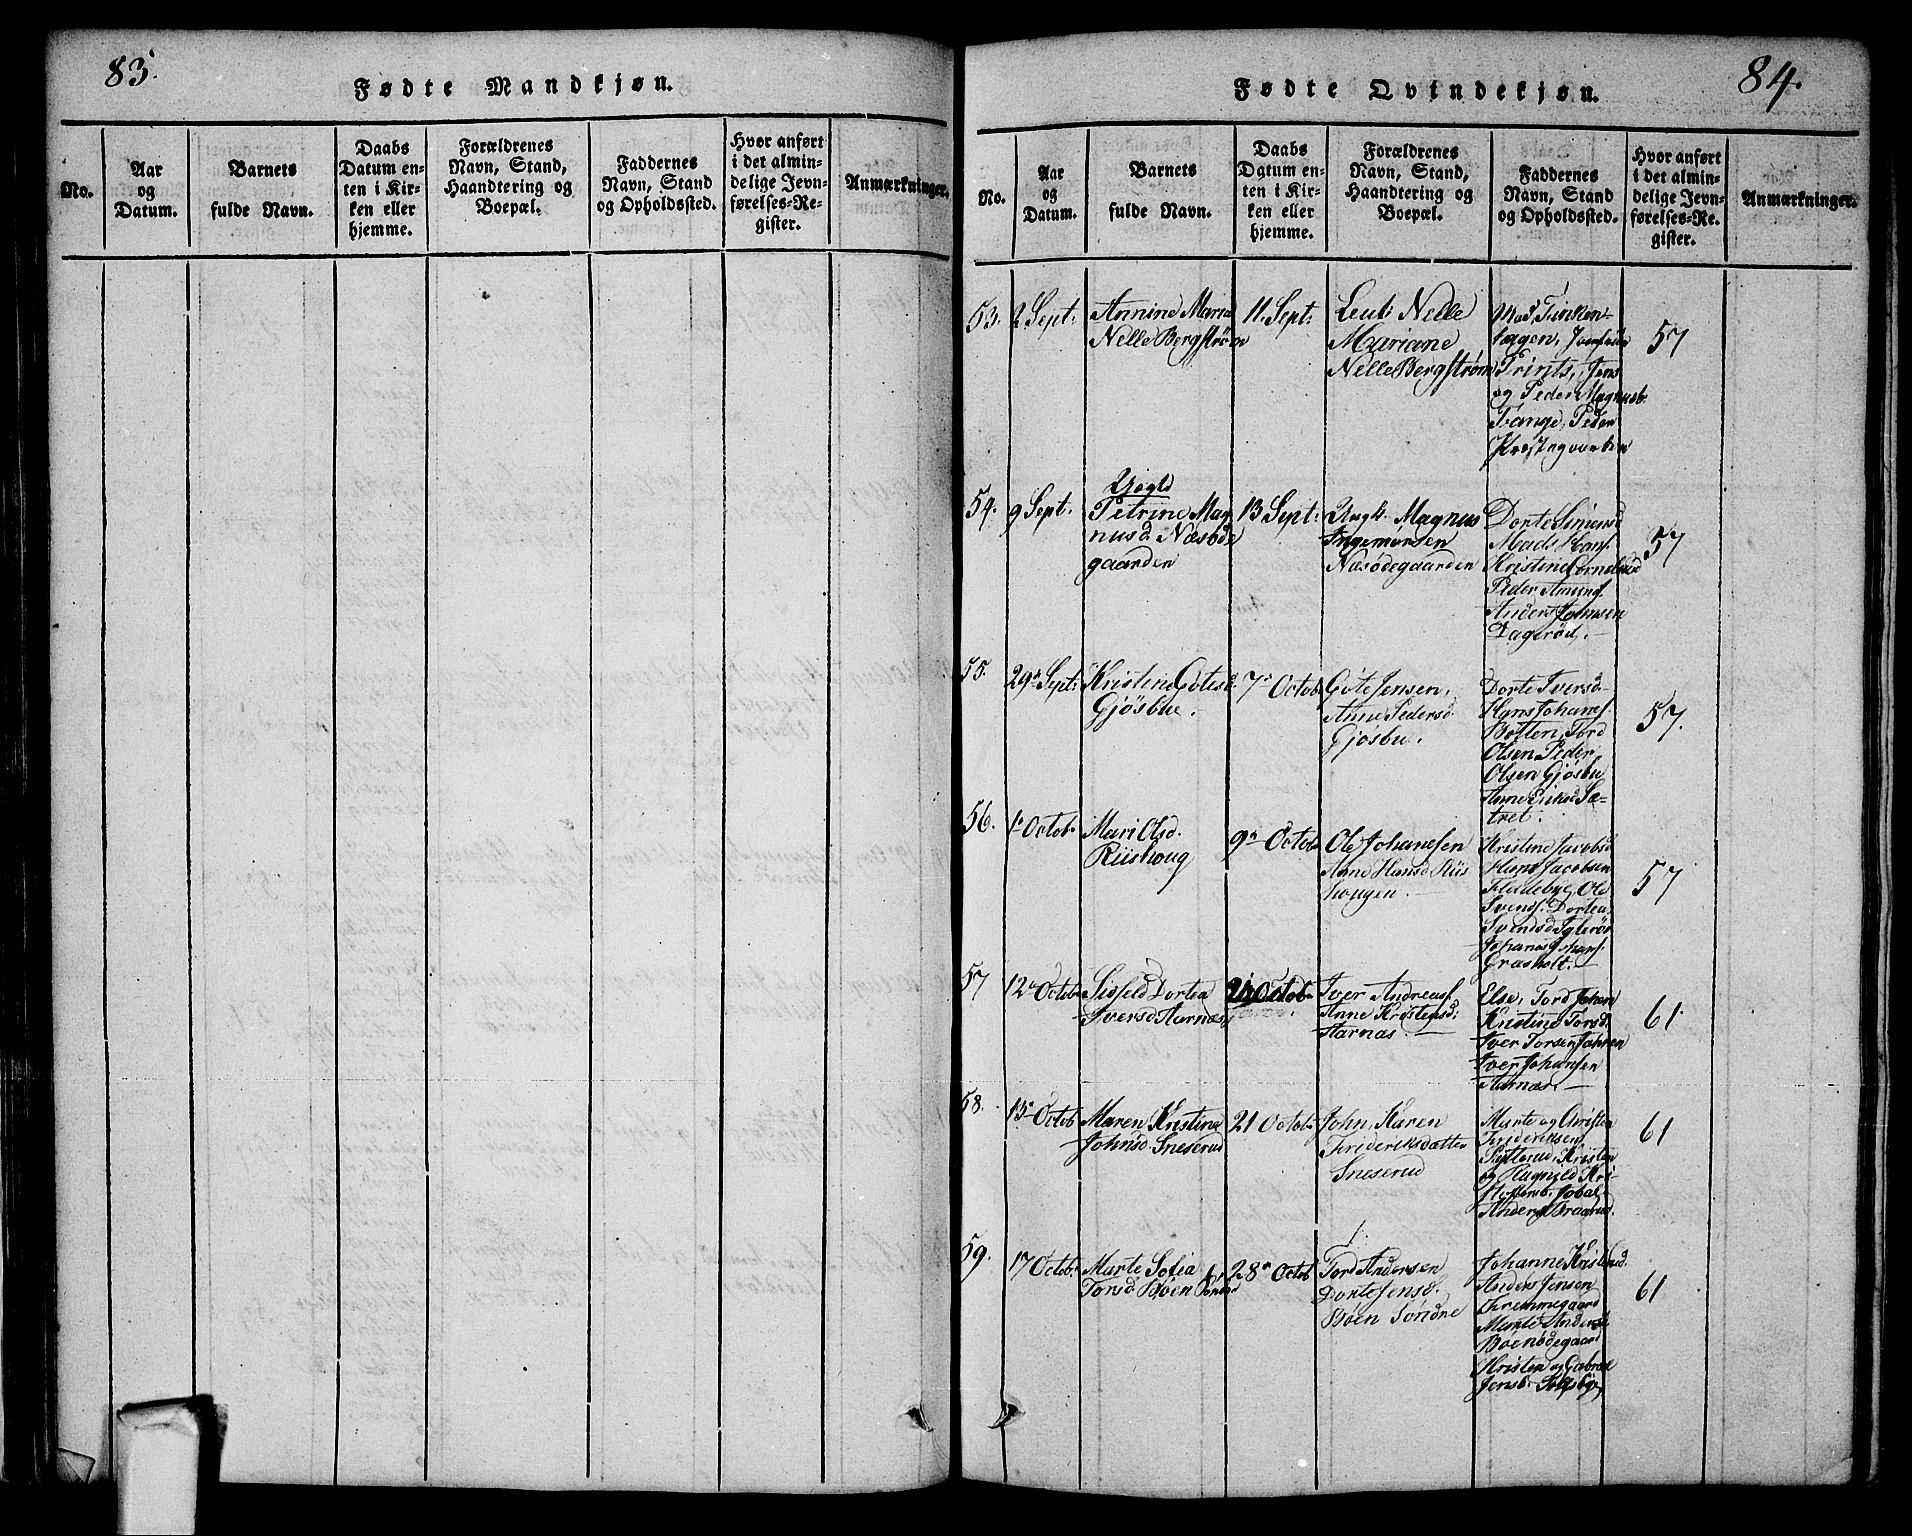 83.
Fødte Mandkjøn.
No.
Aar
og
Datum.
Barnets
fulde Navn.
Daabs
Datum en-
ten i Kir-
ken eller
hjemme.
Forældrenes
Navn, Stand,
Haandtering og
Boepæl.
Faddernes
Navn, Stand
og Opholdssted.
Hvor anført
i det almin-
delige Jevn-
førelses-Re-
gister.
Anmærkninger.
84.
Fødte Qvindekjøn.
No.
Aar
og
Datum.
Barnets
fulde Navn.
Daabs
Datum en-
ten i Kir-
ken eller
hjemme.
Forældrenes
Navn, Stand,
Haandtering og
Boepæl.
Faddernes
Navn, Stand
og Opholdssted.
Hvor anført
i det almin-
delige Jevn-
førelses-Re-
gister.
Anmærkninger.
53.
2 Sept:
Annine Maria
Nelle Bergstrøm
11. Sept:
Leut: Nelle
Mariane
Nelle Bergstrøm
Trints, Jens
og Peder Magnusb.
Tange, Peder
57
54.
9 Sept.
Uægte
Petrine Mag
nusd Næsøde
gaarden
13 Sept:
Ungk. Magnus
Ingemunsen
Næsødegaarden
Dorte Simensd
Mads Hans.
Kristine Cornelisd
Peder Amuns.
Anders Johnsen
Dagerød.
57
55.
29 Sept:
Kristine Gotesd.
Gjøsbue.
7 Octob
Gote Jensen,
Anne Pedersd.
Gjøsbu.
Dorte Iversd
Hans Johans.
Botten, Tord
Olsen Peder
Olsen Gjøsbu
Anne Eriksd Sæ-
tret.
57.
56.
1 Octob
Mari Olsd.
Riishoug
9 Octob
Ole Johanesen
Anne Hansd Riis
hougen.
Kristine Jacobsd
Hans Jacobsen
Fladebye, Ole
Svends. Dortea
Svendsd Iglerøs
Johanes Johans.
Grasholt.
57
57
12 Octob
Sidseld Dortea
Iversd Aarnæs
Octob
Iver Andreas.
Anne Kristensd:
Aarnæs.
Else, Tord Johan
Kristine Torsd.
Iver Torsen Johan
Iver Johansen
Aarnæs.
61.
58.
13 Octob
Maren Kristine
Johnsd Sneserud
21 Octob
John, Karen
Frideriksdatter
Sneserud
Marte og Christen
Frideriksen
Sætterud, Kristen
og Ragnild Kri-
Anders Braarud.
61
59.
17 Octob.
Marte Sofia
Torsd Bøen
28 Octob
Tord Andersen
Dorte Jensd.
Bøen Søndre
Johanne Kristensd.
Anders Jensen
Fremmegaard
Marte Anders
Bøenødegaard
Kristen og Gabriel
Jensb.
61